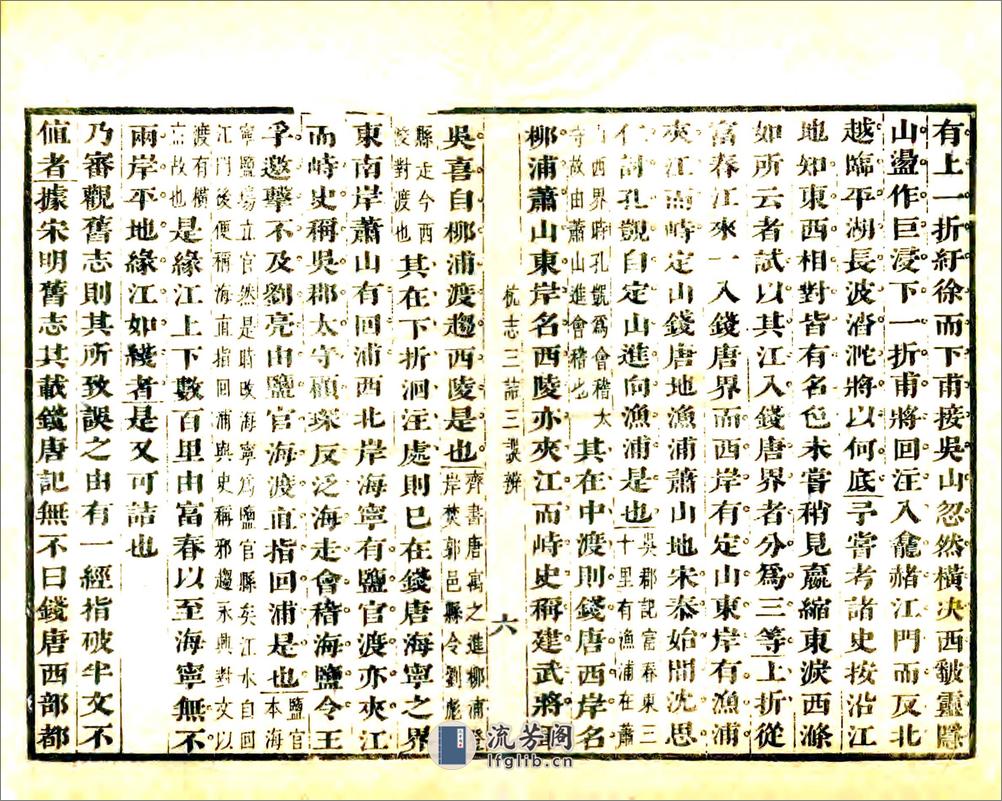 有上一折紆徐而下甫接吳山忽然橫決西皺靈隱
山盪作巨浸下一折甫將回注入龕赭江門而反北
越臨平湖長波㳫沱將以何底予嘗考諸史按沿江
地知東西相對皆有名色未嘗稍見嬴縮東淚西滌
如所云者試以其江入錢唐界者分為三等上折從
富春江來一入錢唐界而西岸有定山東岸有漁浦
夾江而峙定山錢唐地漁浦蕭山地宋泰始間沈思
仁討孔覬自定山進向漁浦是也吳郡記富春東三十里有漁浦在蕭
山西界時孔覬為會稽太守故由蕭山進會稽也其在中渡則錢唐西岸名
柳浦蕭山東岸名西陵亦夾江而峙史稱建武將軍
杭志三詰三誤辨
六
吳喜自柳浦渡趨西陵是也齊書唐寓之進柳浦登岸焚郭邑縣令劉彪
縣走今西渡對渡也其在下折洄注處則已在錢唐海寧之界
東南岸蕭山有回浦西北岸海寧有鹽官渡亦夾江
而峙史稱吳郡太守顧琛反泛海走會稽海鹽令王
孚邀擊不及劉亮由鹽官海渡直指回浦是也鹽官本海
寧鹽場立官然是時改海寧為鹽官縣矣江水自回
江門後便稱海直指回浦與史稱邪趨永興對文以
渡有橫直故也是緣江上下數百里由富春以至海寧無不
兩岸平地緣江如綫者是又可詰也
乃審觀舊志則其所致誤之由有一經指破半文不
值者據宋明舊志其載錢唐記無不曰錢唐西部都
流芳阁
lfglib.cn